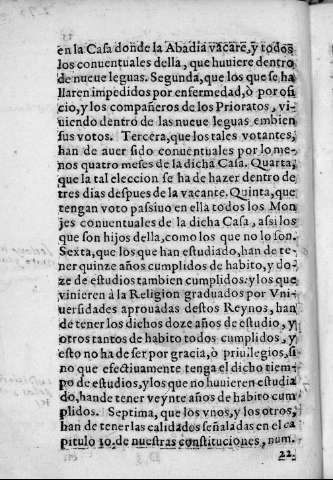 en la Casa donde la Abadia vacare, y todos
los conuentuales della, que huuiere dentro
de nueue leguas. Segunda, que los que se ha
llaren impedidos por enfermedad, ò por ofi
cio, y los compañeros de los Prioratos, vi-
uiendo dentro de las nueue leguas embien
sus votos. Tercera, que los tales votantes,
han de auer sido conuentuales por lo me-
nos quatro meses de la dicha Casa. Quarta,
que la tal eleccion se ha de hazer dentro de
tres dias despues de la vacante. Quinta, que
tengan voto passiuo en ella todos los Mon
jes conuentuales de la dicha Casa, assi los
que son hijos della, como los que no lo son.
Sexta, que los que han estudiado, han de te-
ner quinze años cumplidos de habito, y do-
ze de estudios tambien cumplidos: y los que
vinieren à la Religion graduados por Vni-
uersidades aprouadas destos Reynos, han
de tener los dichos doze años de estudio, y
otros tantos de habito todos cumplidos, y
esto no ha de ser por gracia, ò priuilegios, si
no que efectiuamente tenga el dicho tiem-
po de estudios, y los que no huuieren estudia
do, han de tener veynte años de habito cum
plidos. Septima, que los vnos, y los otros,
han de tener las calidades señaladas en el ca
pitulo 10. de nuestras constituciones, num.
22.